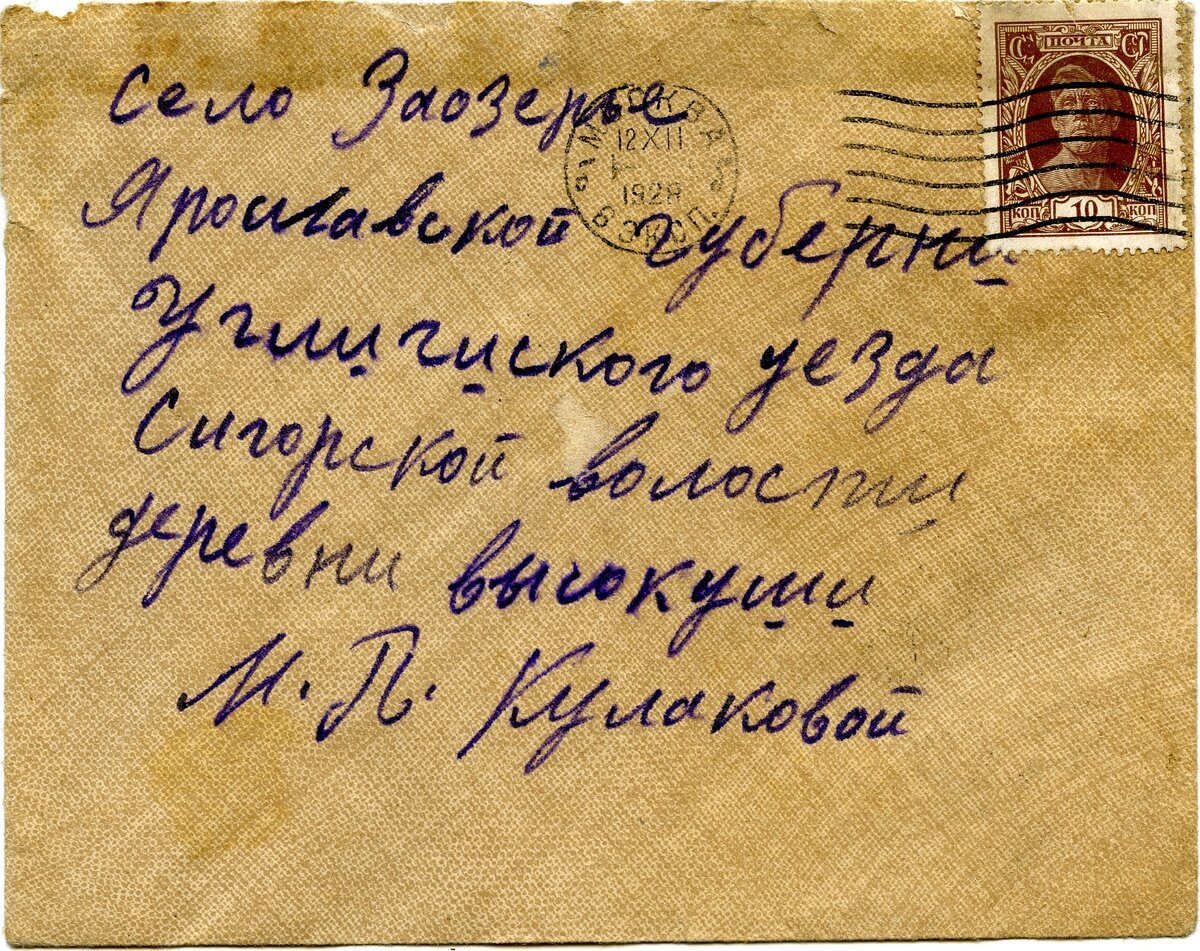 село Заозерье
Ярославской губерни
Углигиского уезда
Сигорской волости
деревни высокуши
М. П. Кулаковой
МОСКВА
12 XII
1928
6 ЭКСП.
ПОЧТА
КОП 10 КОП